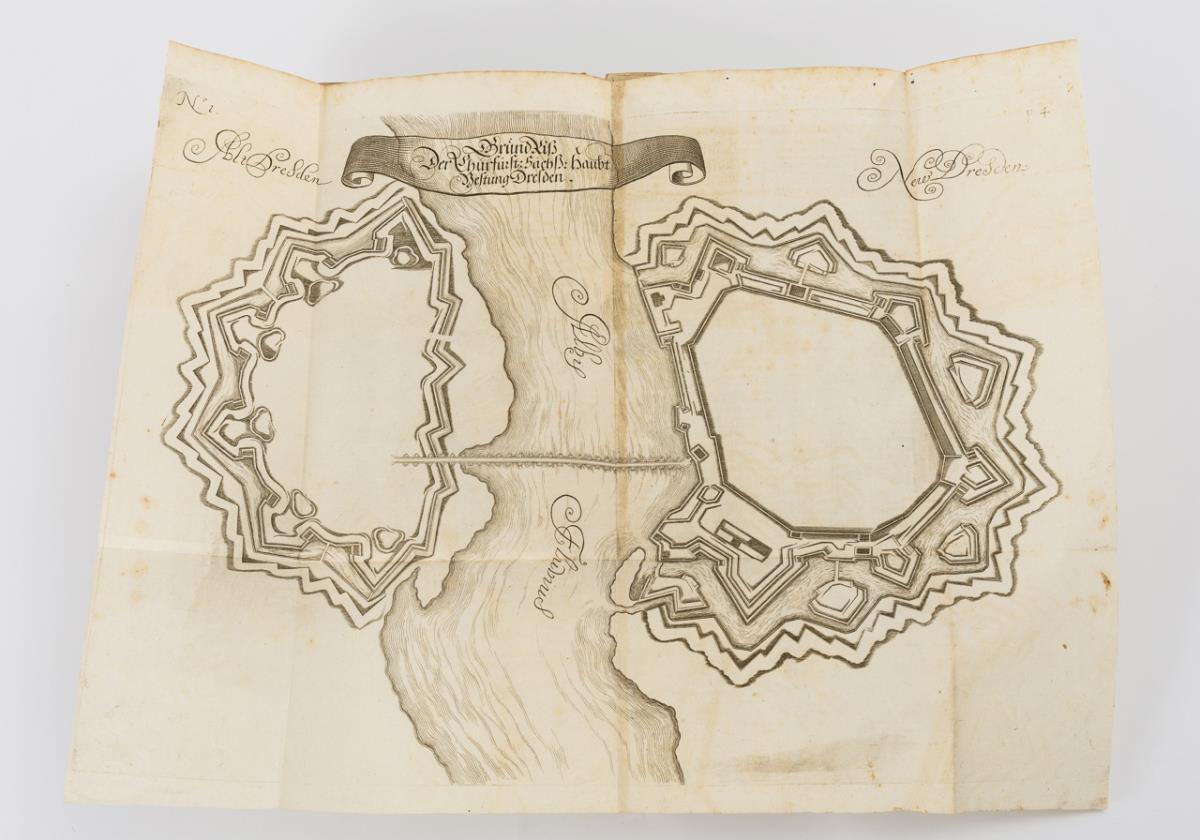 N.º 1.
p. 4.
Alt Dresden
Grund Riß
Der Churfürst: Sächß: Haubt
Vestung Dresden.
New Dresden:
Albis
Fluvius